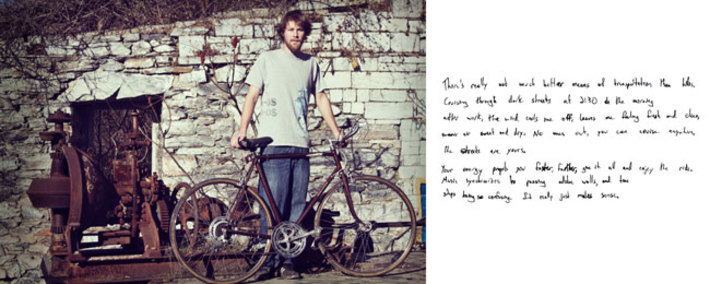 There's really not much better means of transportation than bikes.
Cruising through dark streets at 2:30 in the morning
after work, the wind cools me off, leaves me feeling fresh and clean,
sweat and dry. No ones out, you can cruise anywhere,
the streets are yours.
Your energy propels you faster, further, you sit and enjoy the ride.
Music synchronizes to passing walls, and time
stops being so confusing. It really just makes sense.